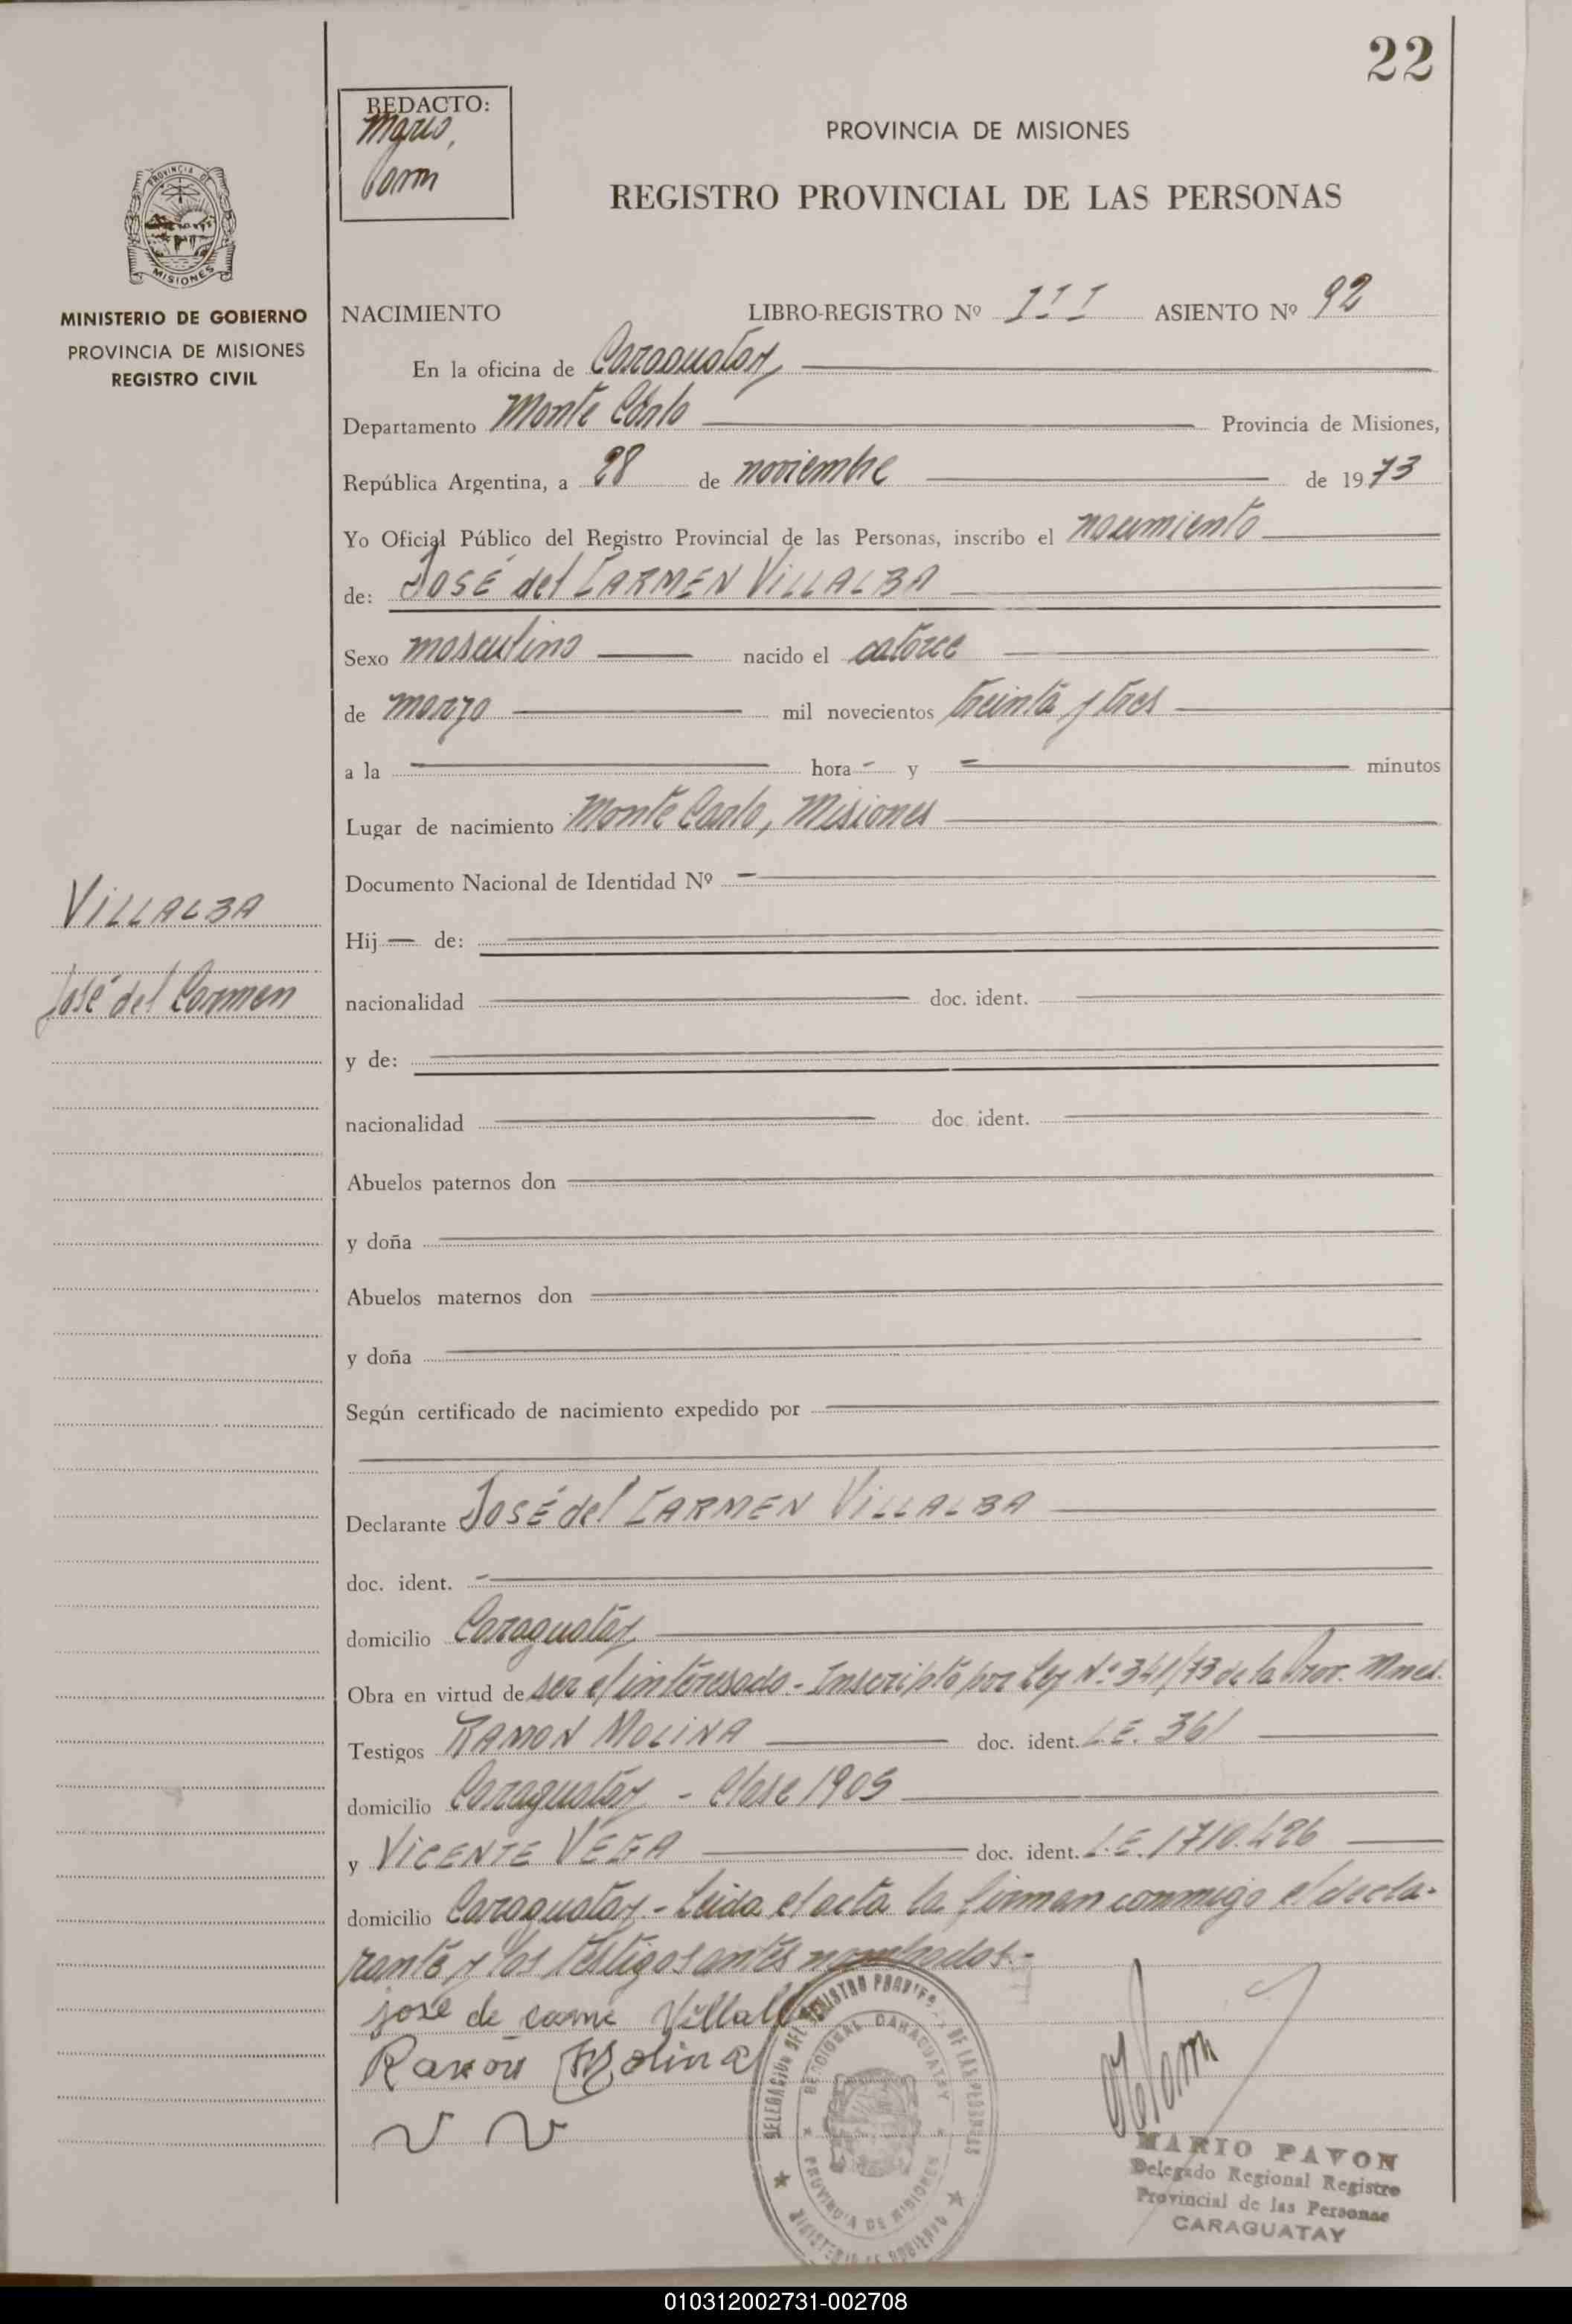 22
REDACTO:
Mario,
PROVINCIA DE MISIONES
REGISTRO PROVINCIAL DE LAS PERSONAS
PROVINCIA DE
MISIONES
MINISTERIO DE GOBIERNO
PROVINCIA DE MISIONES
REGISTRO CIVIL
NACIMIENTO LIBRO-REGISTRO Nº III ASIENTO Nº 92
En la oficina de Caraguatay
Departamento Monte Carlo Provincia de Misiones,
República Argentina, a 28 de noviembre de 1973
Yo Oficial Público del Registro Provincial de las Personas, inscribo el nacimiento
de: JOSÉ del CARMEN VILLALBA
Sexo masculino nacido el catorce
de marzo mil novecientos treinta y tres
a la — hora - y — minutos
Lugar de nacimiento Monte Carlo, Misiones
Documento Nacional de Identidad Nº —
VILLALBA
José del Carmen
Hij — de:
nacionalidad doc. ident.
y de:
nacionalidad doc. ident.
Abuelos paternos don
y doña
Abuelos maternos don
y doña
Según certificado de nacimiento expedido por
Declarante JOSÉ del CARMEN VILLALBA
doc. ident. —
domicilio Caraguatay
Obra en virtud de ser el interesado.- Inscripto por Ley Nº 341/73 de la Prov. Mnes.
Testigos RAMON MOLINA doc. ident. L.E. 361
domicilio Caraguatay - Clase 1905
y VICENTE VEGA doc. ident. L.E. 1710.426
domicilio Caraguatay.- Leida el acta la firman conmigo el decla-
rante y los testigos antes nombrados.-
jose de carme Villalba
Ramon Molina
V V
DELEGACION DEL REGISTRO PROVINCIAL DE LAS PERSONAS
SECCIONAL CARAGUATAY
PROVINCIA DE MISIONES
MINISTERIO DE GOBIERNO
MARIO PAVON
Delegado Regional Registro
Provincial de las Personas
CARAGUATAY
010312002731-002708